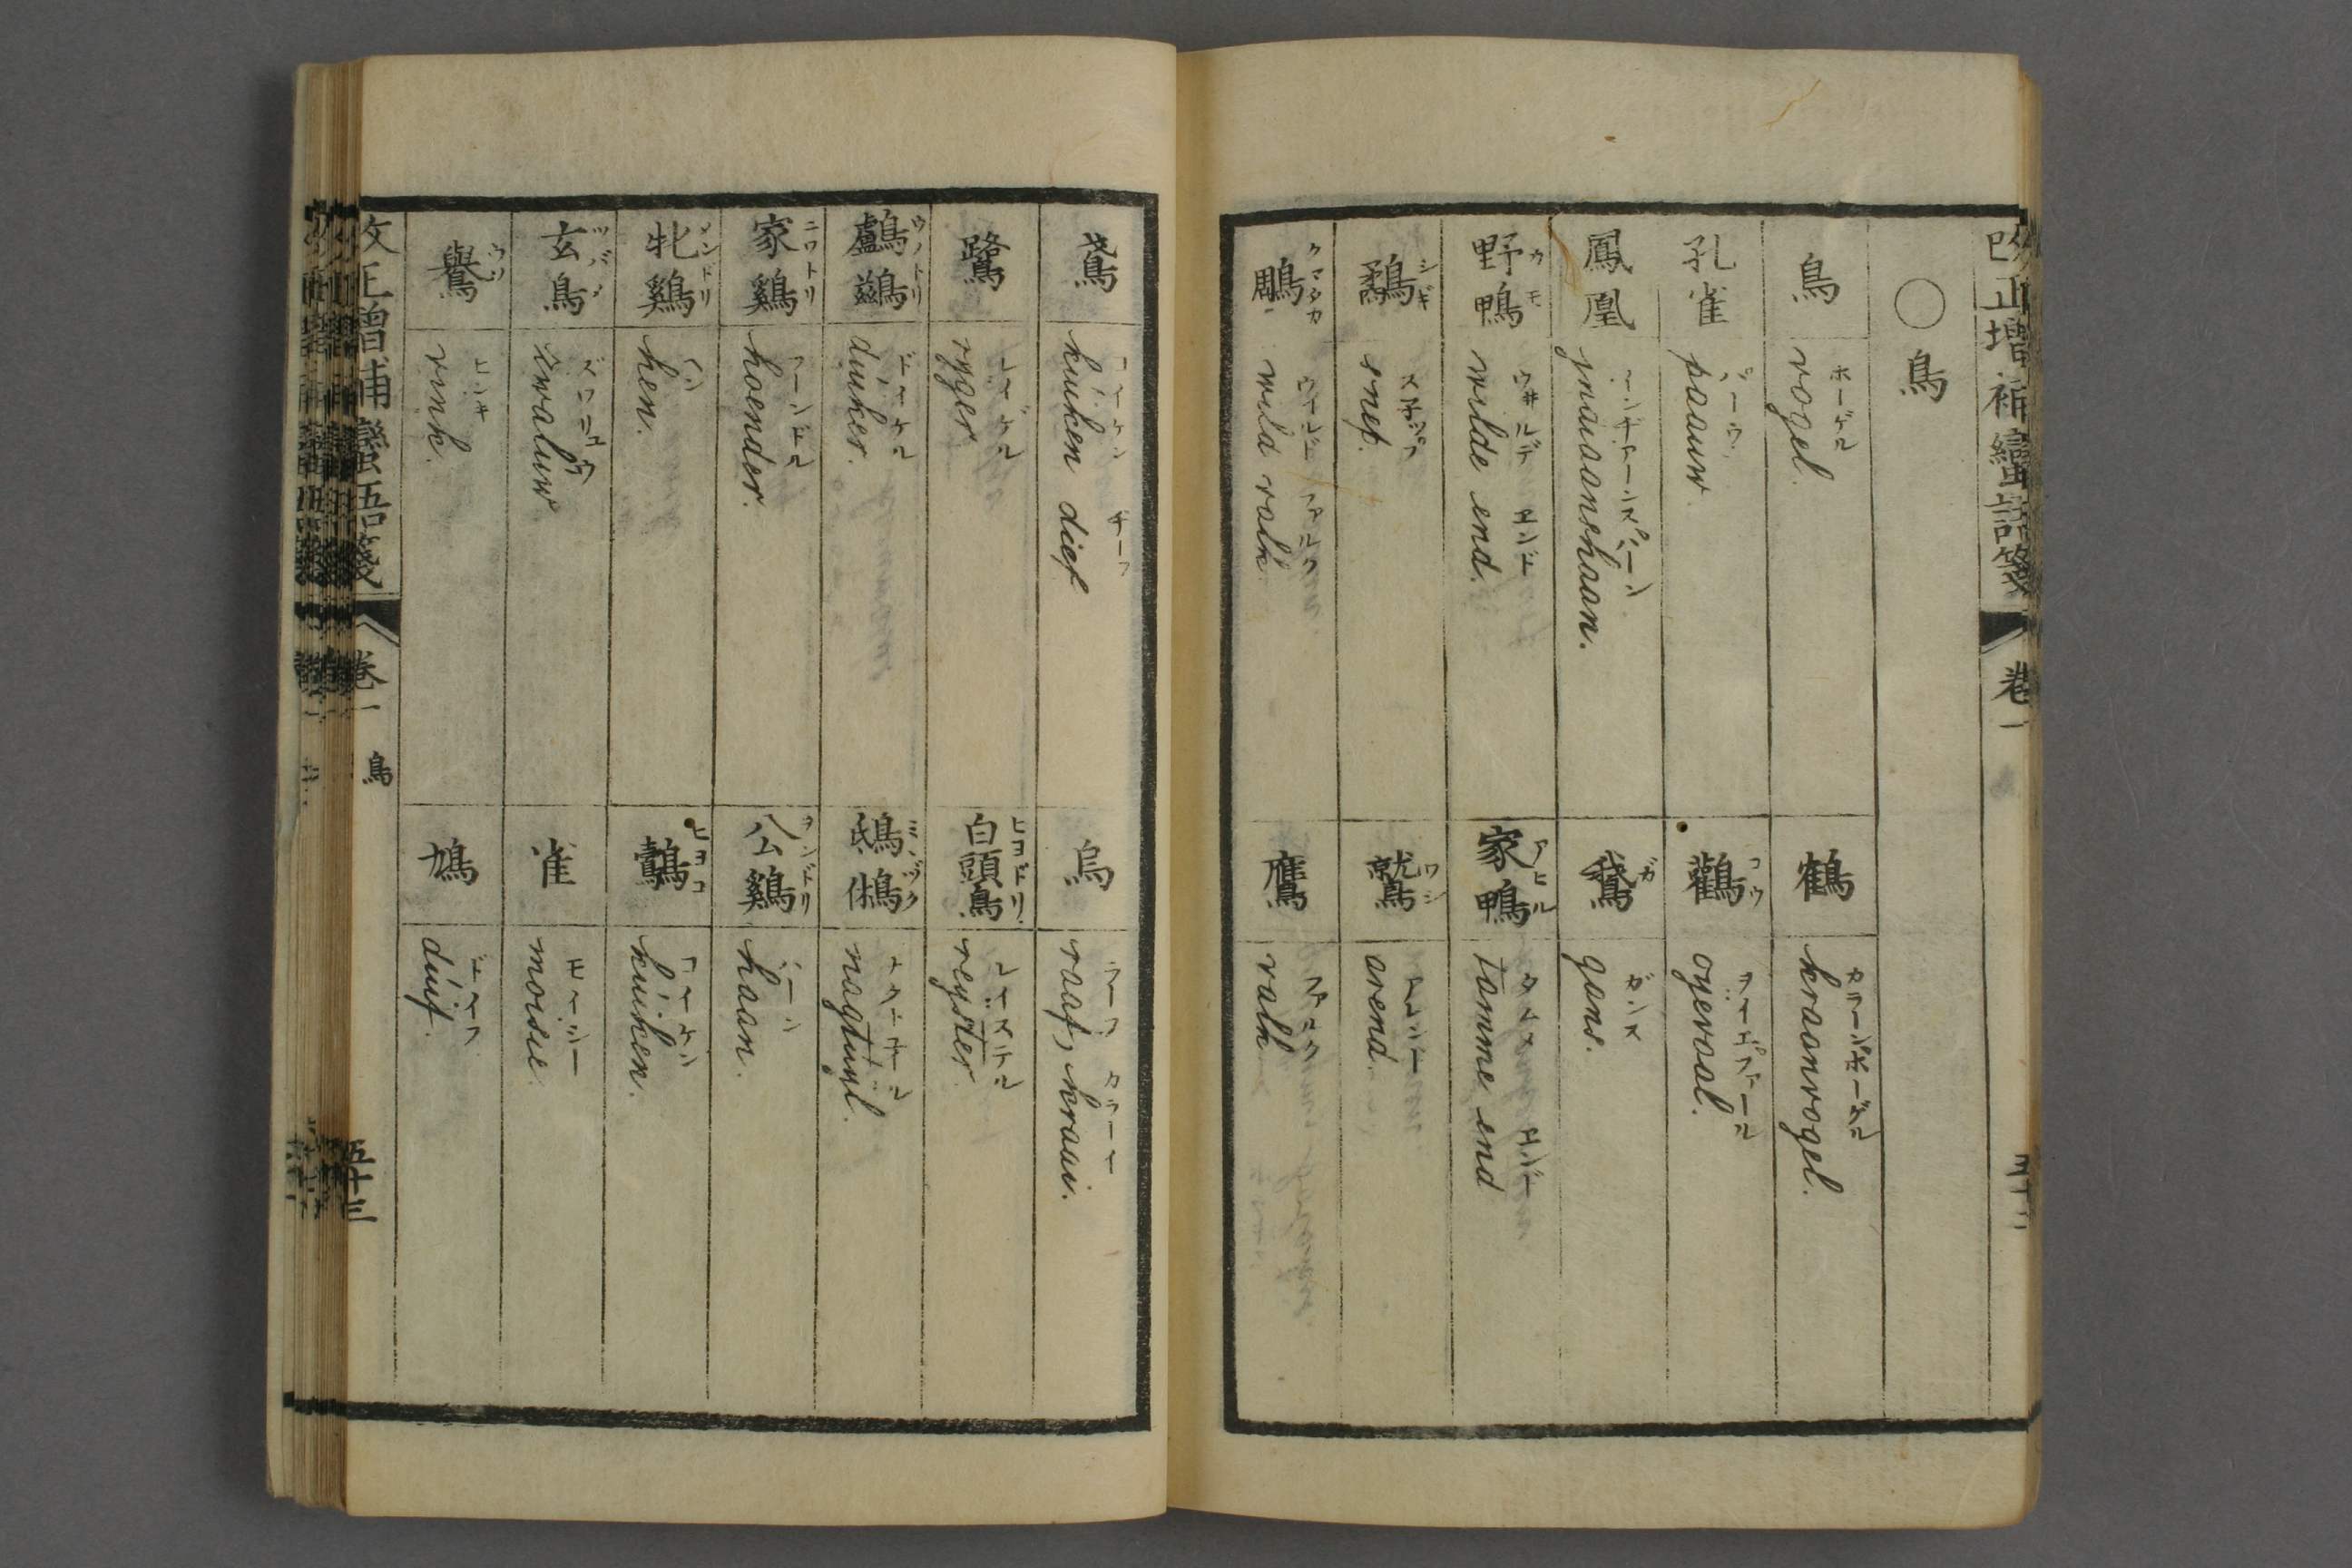 改正増補蠻語箋 卷一
〇鳥
鳥 ホーゲル vogel.
鶴 カラーンホーゲル kraanvogel.
孔雀 パーウ paauw.
鸛 コウ ヲイエファール oyevaal.
鳳凰 paradijshaan.
鵞 ガ ガンス gans.
野鴨 カモ ウ井ルデ エンド wilde end.
家鴨 アヒル タムメ エンド tamme end
鷸 シギ snep.
鷲 ワシ アレンド arend.
鵰 クマタカ ウイルド ファルク wild valk
鷹 ファルク valk
鳶 コイケン チーフ kuiken dief
烏 ラーフ カラーイ raaf, kraai.
鷺 レイゲル ryger.
白頭鳥 ヒヨドリ レイステル reyster.
鸕鷀 ウノトリ ドイケル duiker.
鴟鵂 ミヽヅク ナクトオイル nagtuyl.
家鷄 ニワトリ フーンドル hoender.
公鷄 ヲンドリ ハーン haan.
牝鷄 メンドリ ヘン hen.
ヒヨコ コイケン kuiken.
玄鳥 ツバメ ズワリュウ zwaluw
雀 モイシー moisie
鷽 ウソ ヒンキ vink.
鳩 ドイフ duif.
改正增補蠻語箋 卷一 鳥 五十三